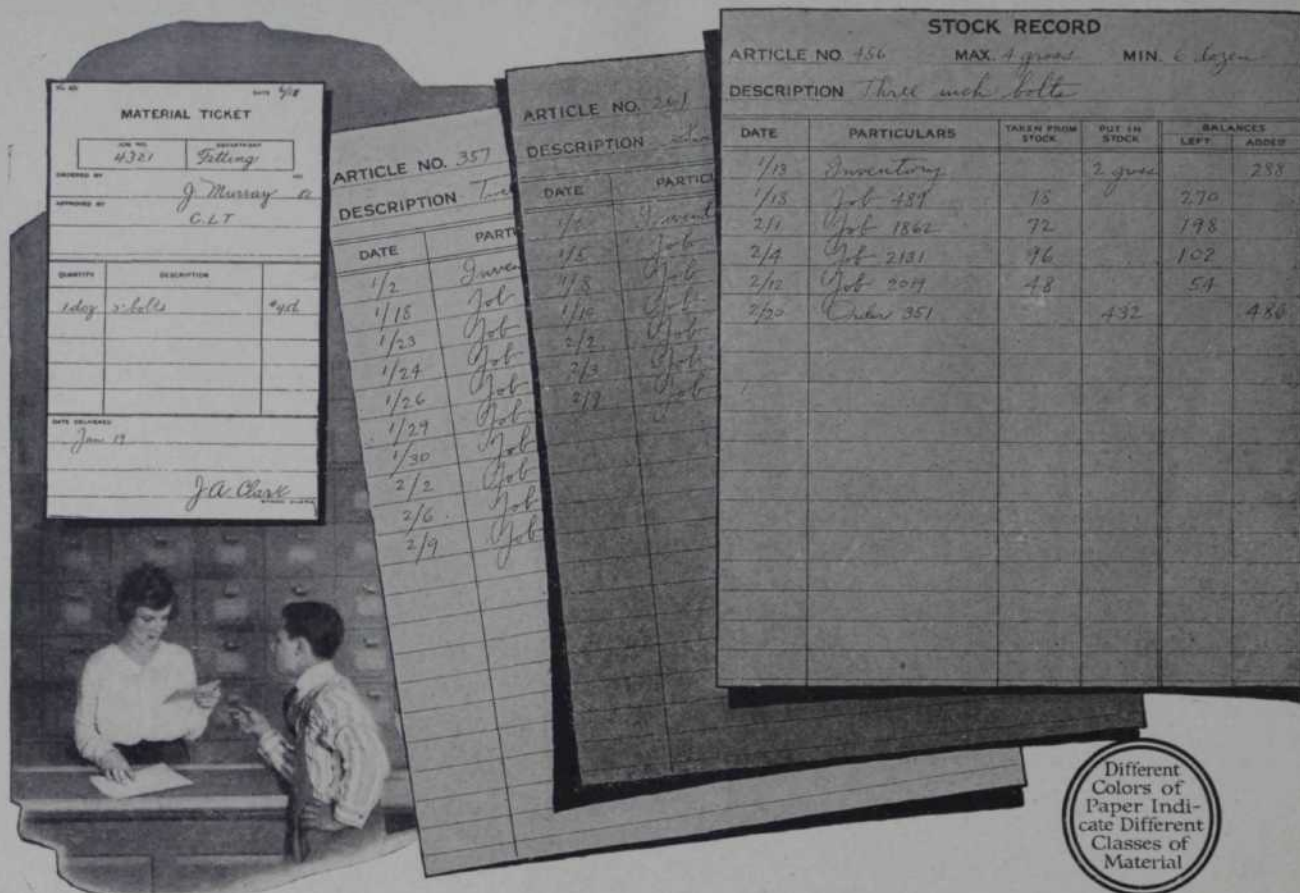 DATE 6/18
MATERIAL TICKET
JOB NO. DEPARTMENT
4321 Fitting
ORDERED BY NO.
J. Murray
APPROVED BY
C.L.T
QUANTITY DESCRIPTION
1 doz bolts
DATE DELIVERED
Jan 19
J.A. Clark
ARTICLE NO. 357
DESCRIPTION
DATE PARTI
1/2 Inven
1/18 Job
1/23 Job
1/24 Job
1/26 Job
1/29 Job
1/30 Job
2/2 Job
2/6 Job
2/9 Job
ARTICLE NO.
DESCRIPTION
DATE PARTICU
Invent
1/5 Job
1/8 Job
1/19 Job
2/2 Job
2/3 Job
2/9 Job
STOCK RECORD
ARTICLE NO. 456 MAX. 4 gross MIN. 6 dozen
DESCRIPTION Three inch bolts
DATE PARTICULARS TAKEN FROM STOCK PUT IN STOCK BALANCES
LEFT ADDED
1/13 Inventory 2 gross 288
1/15 Job 489 18 270
2/1 Job 1862 72 198
2/4 Job 2131 96 102
2/12 Job 2019 48 54
2/20 Order 351 432 486
Different
Colors of
Paper Indi-
cate Different
Classes of
Material